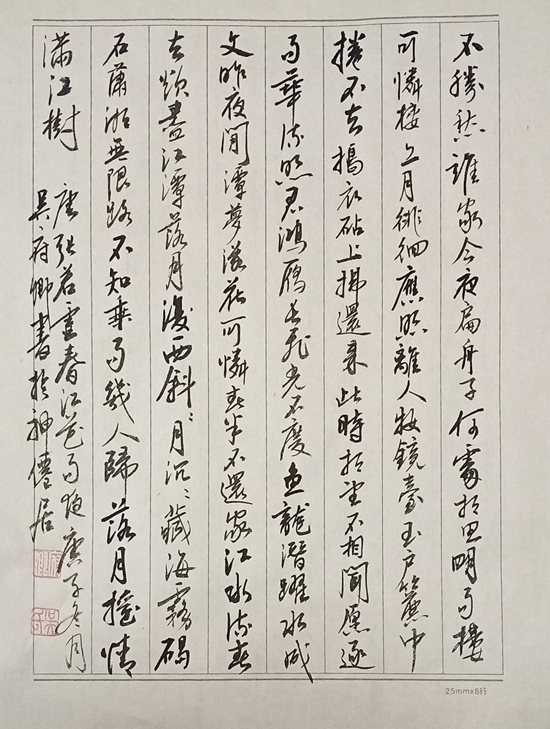 不勝愁誰家今夜扁舟子何處相思明月樓
可憐樓上月徘徊應照離人妝鏡臺玉戶簾中
捲不去搗衣砧上拂還來此時相望不相聞願逐
月華流照君鴻雁長飛光不度魚龍潛躍水成
文昨夜閒潭夢落花可憐春半不還家江水流春
去欲盡江潭落月復西斜〻月沉〻藏海霧碣
石瀟湘無限路不知乘月幾人歸落月搖情
滿江樹
唐張若虛春江花月夜庚子冬月
吳府卿書於神僊居
25mmx8行